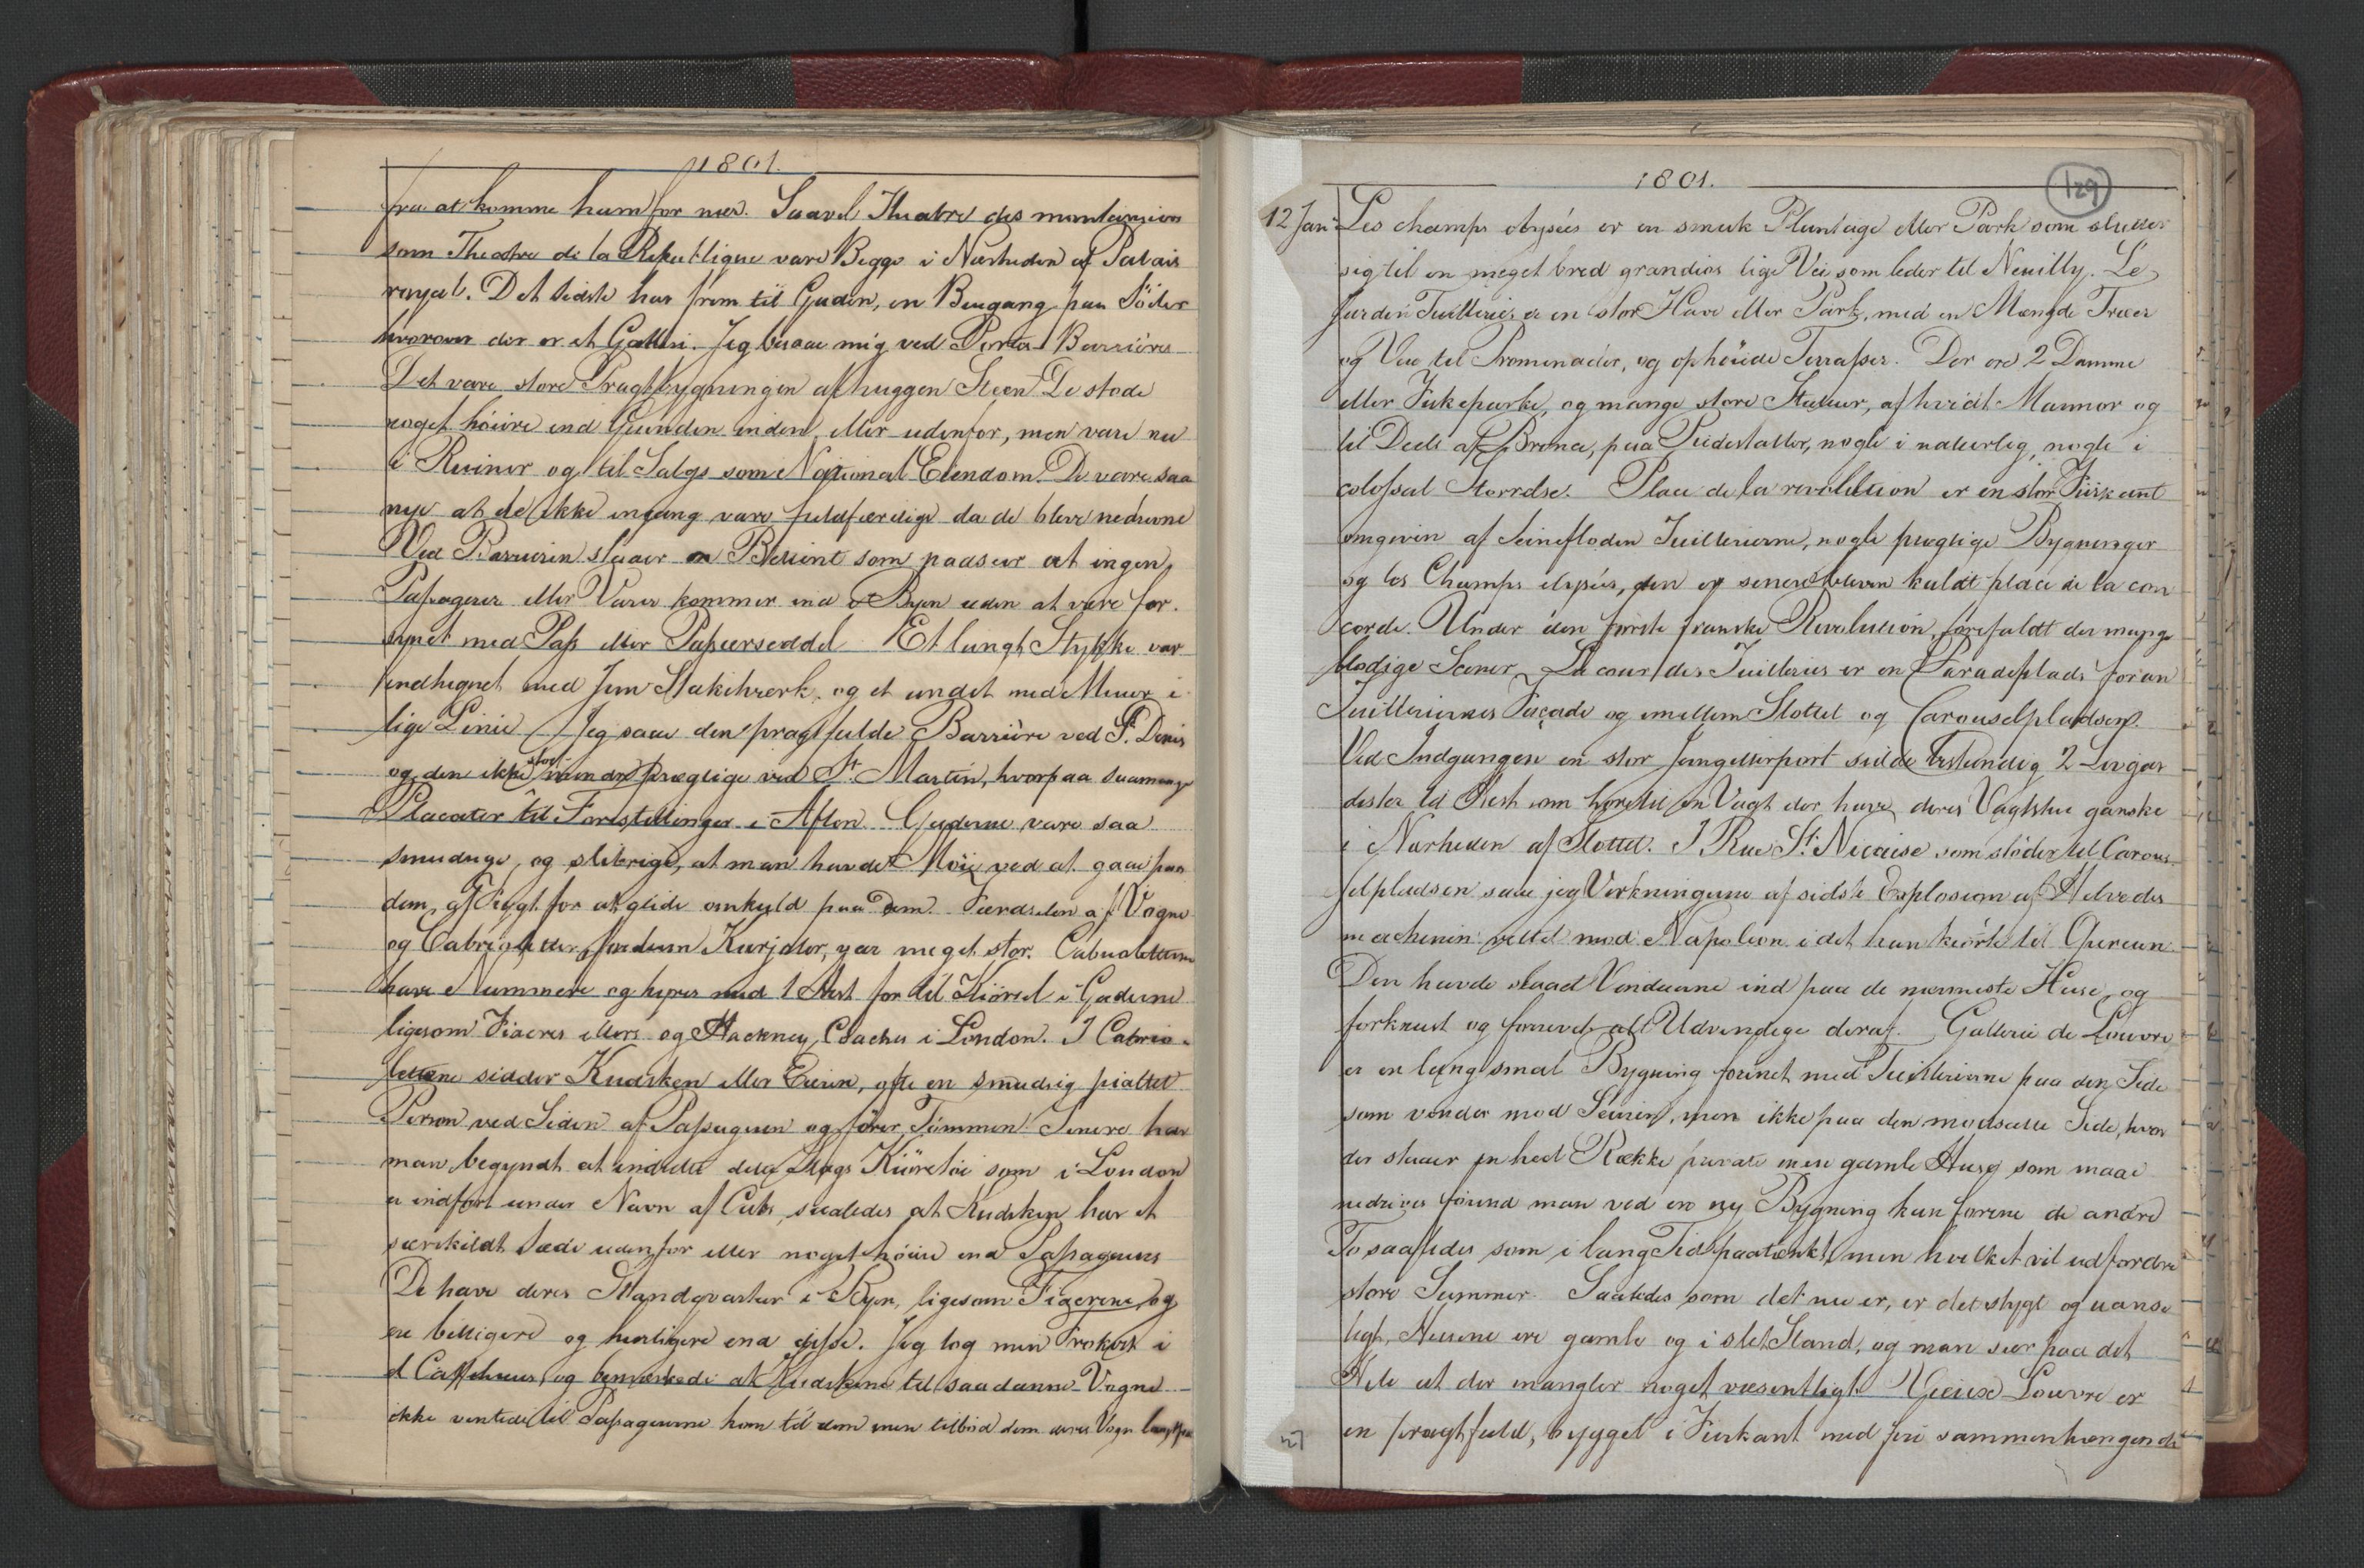 1801.
fra at komme ham for nær. Saavel Theatre des montansier
som Theatre de la Republique vare Begge i Nærheden af Palais
royal. Det sidste har frem til Gaden, en Buegang paa Söiler
hvorover der er et Galleri. Jeg besaae mig ved Barrières
Det vare store Pragtbygningen af huggen Steen De stode
noget höiere end Grunden inden eller udenfor, men vare nu
i Ruiner og til Salgs som National Eiendom. De vare saa
nye at de ikke engang vare fuldfærdige da de bleve nedrevne
Ved Barrieren staaer en Betient som paaseer at ingen
Passagerer eller Varer kommer ind i Byen uden at være for-
synet med Pass eller Passeerseddel Et langt Stykke var
indhegnet med Jern Stakitværk, og et andet med Muur i
lige Linie Jeg saae den pragtfulde Barrière ved St. Denis
og den ikke stort mindre prægtige ved St. Martin, hvorpaa saamange
Placater til Forestillinger i Aften. Gaderne vare saa
smudsige, og slibrige, at man havde Möie ved at gaae paa
dem, af Frygt for at glide omkuld paa dem. Færdselen af Vogne
og Cabrioletter, fordum Karjoler, var meget stor. Cabrioletterne
have Nummere og hyres med 1 Hest for til Kiörsel i Gaderne
ligesom Fiacres ellers og Hackney Coaches i London. I Cabrio-
letterne sidder Kudsken eller Eieren, ofte en smudsig pialtet
Person ved Siden af Passageren og förer Tömmen Senere har
man begyndt at indrette dette Slags Kiöretöi som i London
er indfört under Navn af Cabs, saaledes at Kudsken har et
særskildt Sæde udenfor eller noget höiere end Passagerens
De have deres Standqvarteer i Byen, ligesom Fiacrerne, og
ere billigere og hurtigere end disse. Jeg tog min Frokost i
et Caffehuus, og bemærkede at Kudskene til saadanne Vogne
ikke ventede til Passagererne kom til dem men tilböd dem deres Vogn
1801.
129
12 Jan Les champs elysées er en smuk Plantage eller Park som slutter
sig til en meget bred grandios lige Vei som leder til Neuilly. Le
Jardin Tuilleries er en stor Have eller Park, med en Mængde Træer
og Veie til Promenader, og ophöiede Terrasser. Der ere 2 Damme
eller Fiskeparke, og mange store Statuer, af hvidt Marmor og
til Deels af Bronce, paa Piedestaller, nogle i naturlig, nogle i
colossal Störrelse. Place de la revolution er en stor Fiirkant
omgiven af Seinefloden Tuillerierne, nogle prægtige Bygninger
og les Champs elysées, den er senere bleven kaldt place de la con
corde. Under den förste franske Revolution, forefaldt der mange
blodige Scener. La cour des Tuilleries er en Paradeplads foran
Tuilleriernes Façade og imellem Slottet og Carouselpladsen.
Ved Indgangen en stor Jerngitterport sidde bestandig 2 Livgar
dister til Hest som höre til en Vagt der have deres Vagtstue ganske
i Nærheden af Slottet. I Rue St. Nicaise som stöder til Carous-
selpladsen saae jeg Virkningerne af sidste Explosion af Helvedes
machinen rettet mod Napoleon i det han kiörte til Operaen.
Den havde slaaet Vinduerne ind paa de nærmeste Huse, og
forknust og forrevet alt Udvendige deraf. Gallerie de Louvre
er en lang smal Bygning forenet med Tuillerierne paa den Side
som vender mod Seinen, men ikke paa den modsatte Side, hvor
der staaer en heel Række private men gamle Huse som maae
nedrives förend man ved en ny Bygning kan forene de andre
To saaledes som i lang Tid paatænkt men hvilket vil udfordre
store Summer. Saaledes som det nu er, er det stygt og uanse
ligt, Husene ere gamle og i slet Stand, og man seer paa det
Hele at der mangler noget væsentligt. Vieux Louvre er
en pragtfuld, bygget i Fiirkant med fire sammenhængende